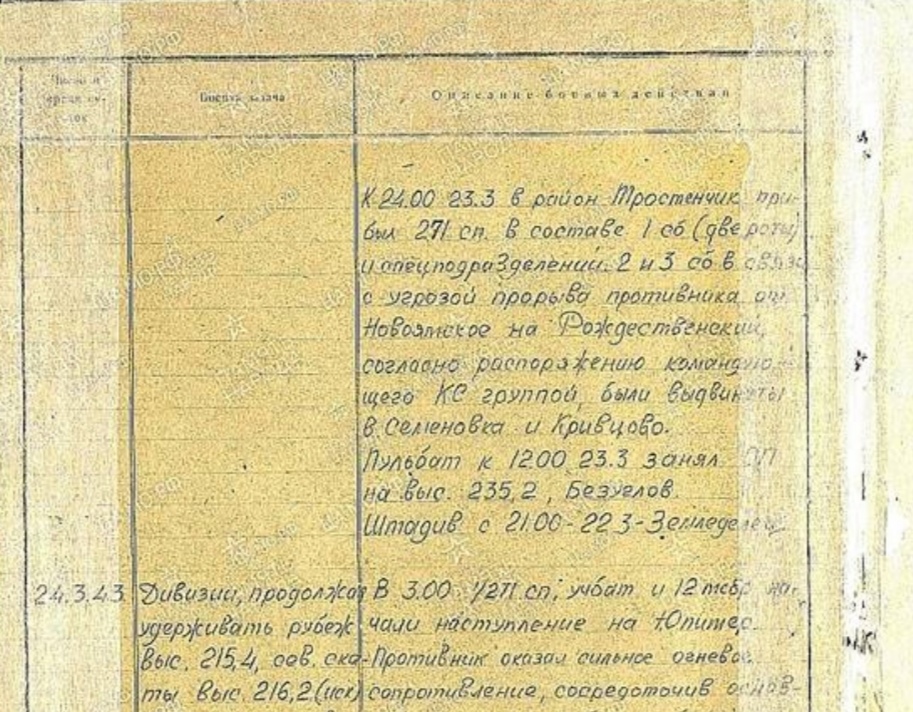 Число и
время су-
ток
Боевая задача
Описание боевых действий
К 24.00 23.3 в район Тростенчик при-
был 271 сп. в составе 1 сб (две роты)
и спецподразделений. 2 и 3 сб в связи
с угрозой прорыва противника от
Новоямское на Рождественский,
согласно распоряжению командую-
щего КС группой, были выдвинуты
в Семеновка и Кривцово.
Пульбат к 12.00 23.3 занял ОП
на выс. 235,2, Безуглов.
Штадив с 21.00 - 22 3 - Земледелец
24.3.43.
Дивизии, продолжая
удерживать рубеж
выс. 215,4, сев. ска-
ты выс. 216,2 (иск)
В 3.00 1/271 сп, учбат и 12 тсбр на-
чали наступление на Юпитер.
Противник оказал сильное огневое
сопротивление, сосредоточив основ-